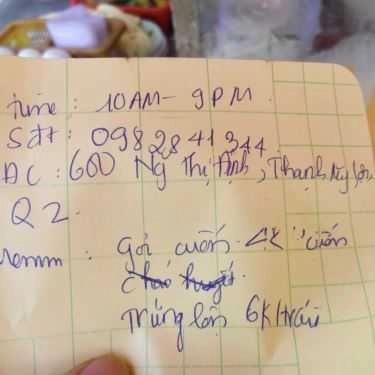 time : 10AM - 9PM.
Sđt : 0982841344
ĐC : 600 Ng Thị Định, Thạnh Mỹ Lợi,
Q2.
menu : gỏi cuốn 4K / cuốn
cháo huyết
Trứng lộn 6K/trái